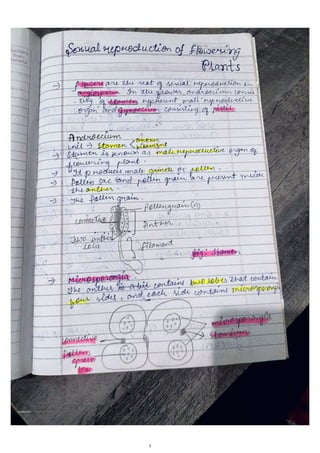 Sexual reproduction of flowering
Plants
→ Flowers are the seat of sexual reproduction in
angiosperm. In the flower androecium consis
-ting of stamen represent male reproductive
organ and gynoecium consisting of pistil
Androecium
unit → Stamen < anther
filament
→ Stamen is known as male reproductive organ of
flowering plant.
→ It produces male gamete or pollen.
→ Pollen sac and pollen grain are present inside
the anther.
→ The Pollen grain.
Pollengrain(n)
connective
Anther
Two anther
lobe
filament
fig: Stamen.
→ Microsporangia
The anther is contains two lobes that contain
four sides, and each side contains microsporangia
microsporangia
connective
Stamen
Pollen
grain